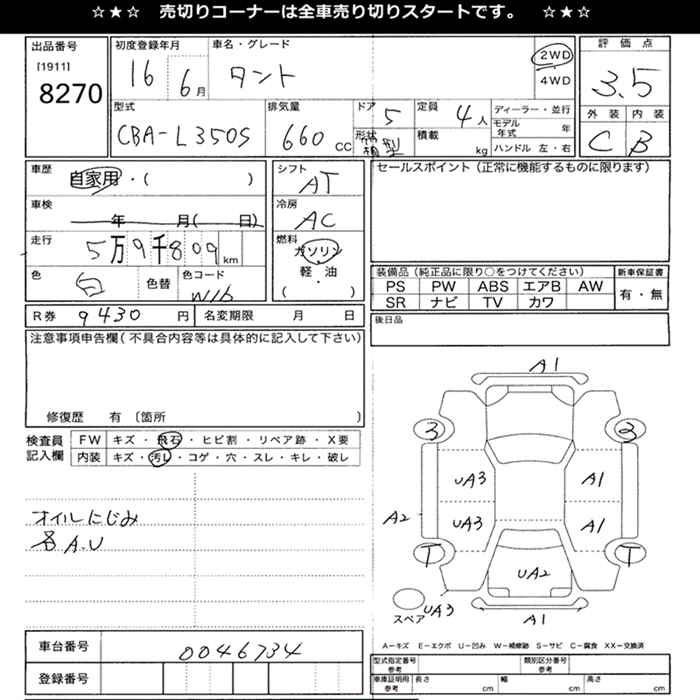 ☆★☆ 売切りコーナーは全車売り切りスタートです。 ☆★☆
出品番号
[1911]
8270
初度登録年月
16 6月
車名・グレード
タント
2WD
4WD
評価点
3.5
外装 内装
C B
型式
CBA-L350S
排気量
660 CC
ドア
5
形状
箱型
定員
4人
積載
kg
ディーラー・並行
モデル年式 年
ハンドル 左・右
車歴
自家用・( )
車検
年 月( 日)
走行
5万9千809km
色
白
色替
色コード
W16
シフト
AT
冷房
AC
燃料
ガソリン
軽・油
( )
セールスポイント(正常に機能するものに限ります)
装備品(純正品に限り○をつけてください)
PS PW ABS エアB AW
SR ナビ TV カワ
新車保証書
有・無
R券 9430円
名変期限 月 日
後日品
注意事項申告欄(不具合内容等は具体的に記入して下さい)
修復歴 有 〔箇所 )
検査員記入欄
FW キズ・飛石・ヒビ割・リペア跡・X要
内装 キズ・汚レ・コゲ・穴・スレ・キレ・破レ
オイルにじみ
各A.U
A1
3 3
UA3 A1
A2 UA3 A1
T T
UA2
スペア UA3
A1
A−キズ E−エクボ U−凹み W−補修跡 S−サビ C−腐食 XX−交換済
車台番号
0046734
登録番号
型式指定番号 参考
類別区分番号 参考
車庫証明用 参考
長さ cm
幅 cm
高さ cm